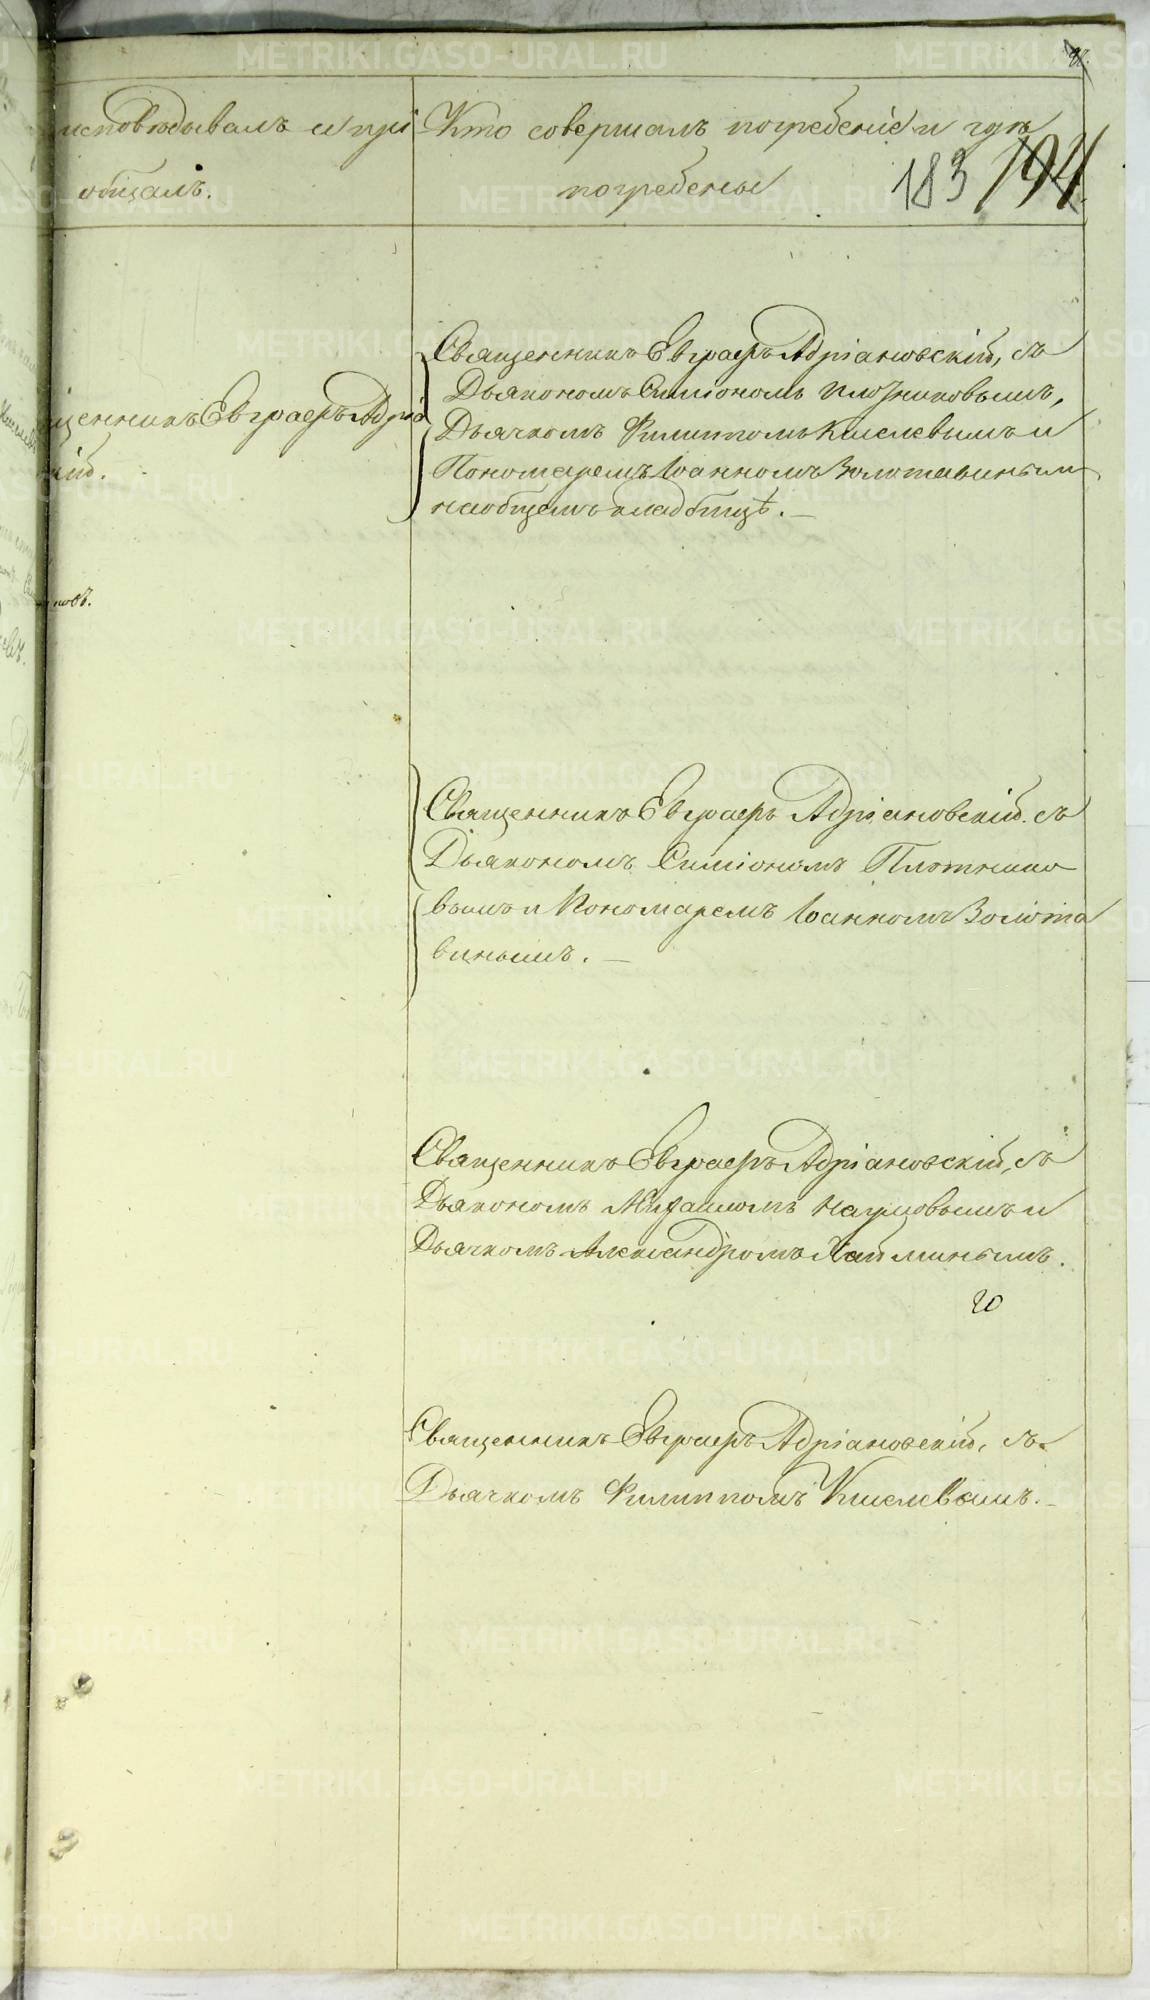 исповѣдывалъ и прі
общалъ.
Кто совершалъ погребеніе и гдѣ
погребены
183 194
щенникъ Евграфъ Адріа
кій.
Священникъ Евграфъ Адріановскій, съ
Дьякономъ Симіономъ Плотниковымъ,
Дьячкомъ Филиппомъ Киселевымъ и
Пономаремъ Іоанномъ Золотавинымъ
на общемъ кладбищѣ. —
новъ.
Священникъ Евграфъ Адріановскій. съ
Дьякономъ Симіономъ Плотнико
вымъ и Пономаремъ Іоанномъ Золота
винымъ. —
Священникъ Евграфъ Адріановскій, съ
Дьякономъ Михаиломъ и
Дьячкомъ Александромъ Хайминымъ.
Священникъ Евграфъ Адріановскій, съ
Дьячкомъ Филиппомъ Киселевымъ. —
METRIKI.GASO-URAL.RU